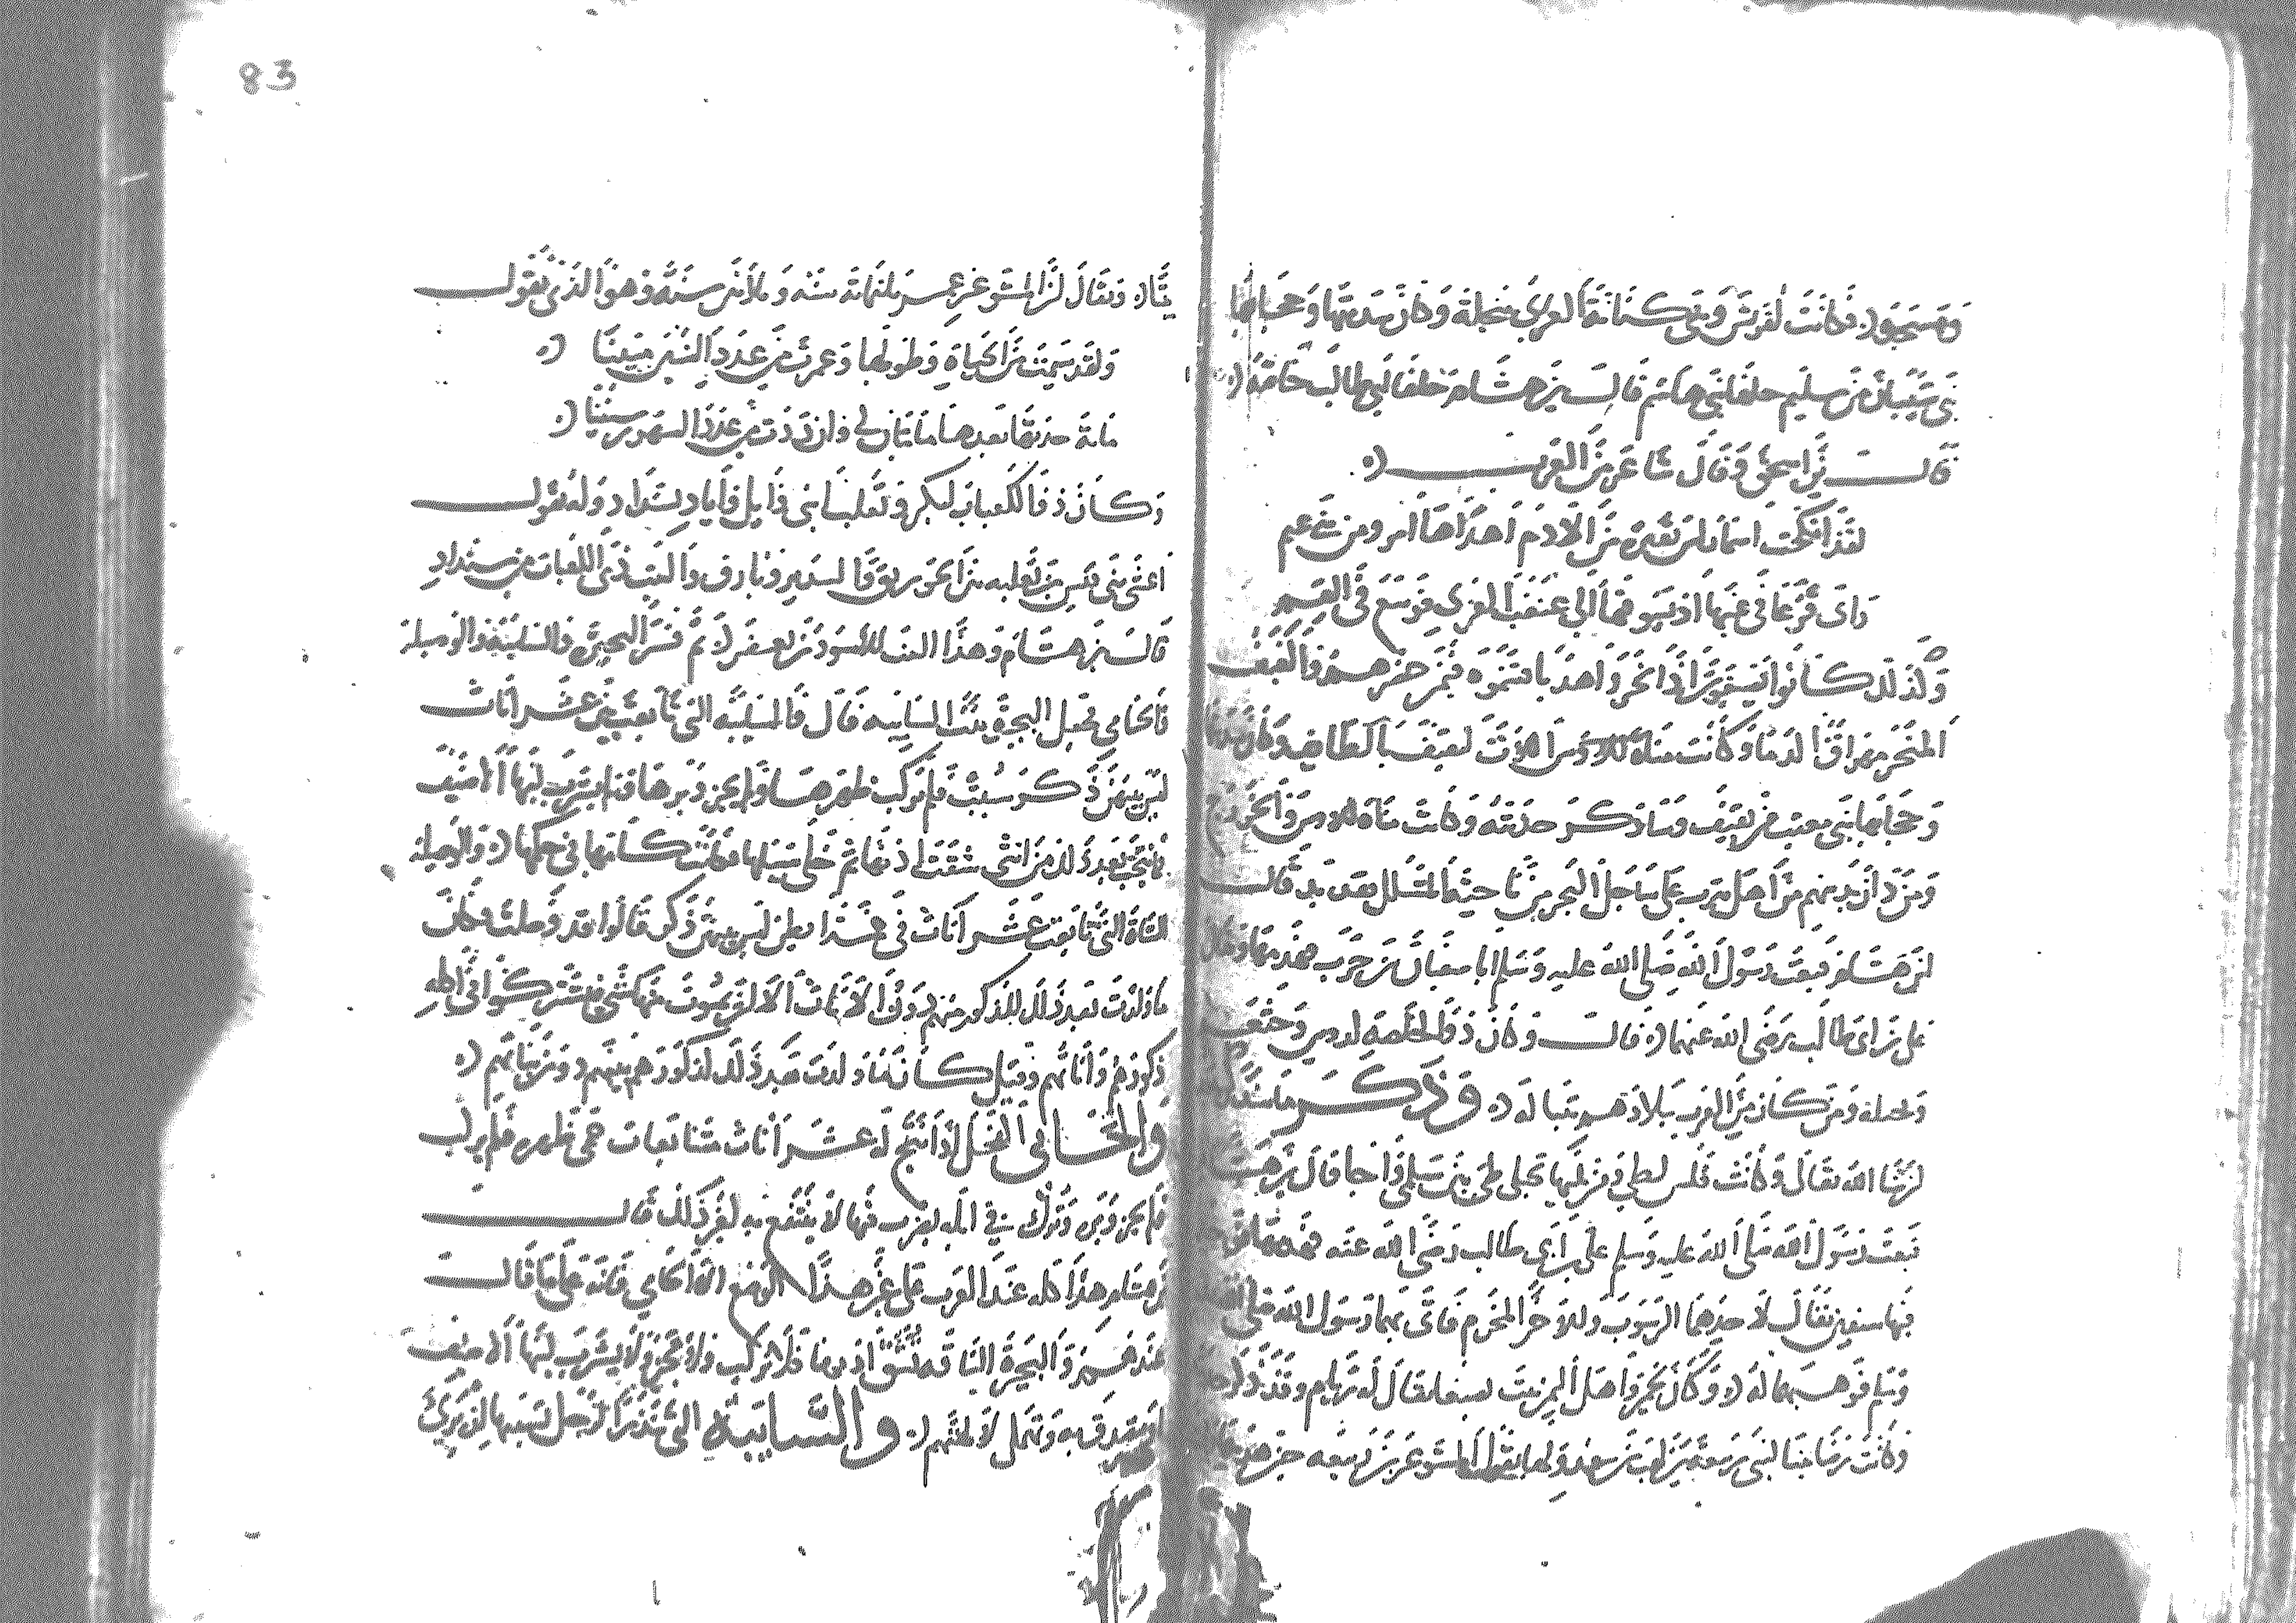 فكانت لقريش وبني كنانة العزى بنخلة وكان سدنتها وحجابها
بني شيبان من سليم حلفا بني هاشم قال ابن هشام حلفا ابي طالب خاصة
قال ابن اسحق وقال شاعر من العرب
لقد انكحت اسما راس بقيرة من الادم اهداها امرو من بني غنم
راى قدعا في عينها اذ يسوقها الى غبغب العزى فوسع في القسم
وكذلك كانوا يصنعون اذا نحروا هديا قسموه فيمن حضرهم والغبغب
المنحر ومهراق الدما وكانت اللات لثقيف بالطايف وكان سدنتها
وحجابها بني معتب من ثقيف وساذكر حديثه وكانت مناة للاوس والخزرج
ومن دان بدينهم من اهل يثرب على ساحل البحر من ناحية المشلل بقديد قال
ابن هشام فبعث رسول الله صلى الله عليه وسلم ابا سفيان بن حرب فهدمها ويقال
علي بن ابي طالب رضي الله عنهما قال وكان ذو الخلصة لدوس وخثعم
وبجيلة ومن كان من العرب ببلادهم بتبالة وذكر
ان شا الله تعالى وكانت فلس لطي ومن يليها بجبلي طي بين سلمى واجا قال ابن هشام
فبعث رسول الله صلى الله عليه وسلم علي بن ابي طالب رضي الله عنه فهدمها فوجد
فيها سيفين يقال لاحدهما الرسوب وللاخر المخذم فاتى بهما رسول الله صلى الله
وسلم فوهبهما له وكان لحمير واهل اليمن بيت بصنعا يقال له ريام وقد ذكر
وكانت رضا بيتا لبني ربيعة بن كعب بن سعد ولها يقول المستوغر بن ربيعة حين هدمها
ويقال ان المستوغر عمر ثلثماية سنة وثلاثين سنة وهو الذي يقول
ولقد سيمت من الحياة وطولها وعمرت من عدد السنين مئينا
ماية حدتها بعدها مايتان لي وازددت من عدد الشهور سنينا
وكان ذو الكعبات لبكر وتغلب ابني وايل واياد بسنداد وله يقول
اعشى بني قيس بن ثعلبة بين الخورنق والسدير وبارق والبيت ذي الكعبات من سنداد
قال ابن هشام وهذا البيت للاسود بن يعفر ثم فسر البحيرة والسايبة والوصيلة
والحامي فجعل البحيرة بنت السايبة قال والسايبة التي تابعت بين عشر اناث
ليس بينهن ذكر سيبت فلم يركب ظهرها ولم يجز وبرها ولم يشرب لبنها الا ضيف
فما نتجت بعد ذلك من انثى شقت اذنها ثم خلى سبيلها فكانت كامها في حكمها والوصيلة
الشاة التي تابعت عشر اناث في خمسة ابطن ليس بينهن ذكر قالوا قد وصلت فكان
ما ولدت بعد ذلك للذكور منهم دون الاناث الا ان يموت منها شي فيشتركوا في اكله
ذكورهم واناثهم وقيل كان ما ولدت بعد ذلك لذكور بنيهم دون بناتهم
والحامي الفحل اذا نتج له عشر اناث متتابعات حمي ظهره فلم يركب
فلم يجز وبره وترك في ابله يضرب فيها لا ينتفع به لغير ذلك قال
ابن هشام وهذا كله عند العرب على غير هذا الوضع الا الحامي فانه على ما قال
عندهم والبحيرة الناقة تشق اذنها فلا تركب ولا يجز ولا يشرب لبنها الا ضيف
او يتصدق به وتهمل لالهتهم والسايبة التي ينذر الرجل ليسيبها ان برئ